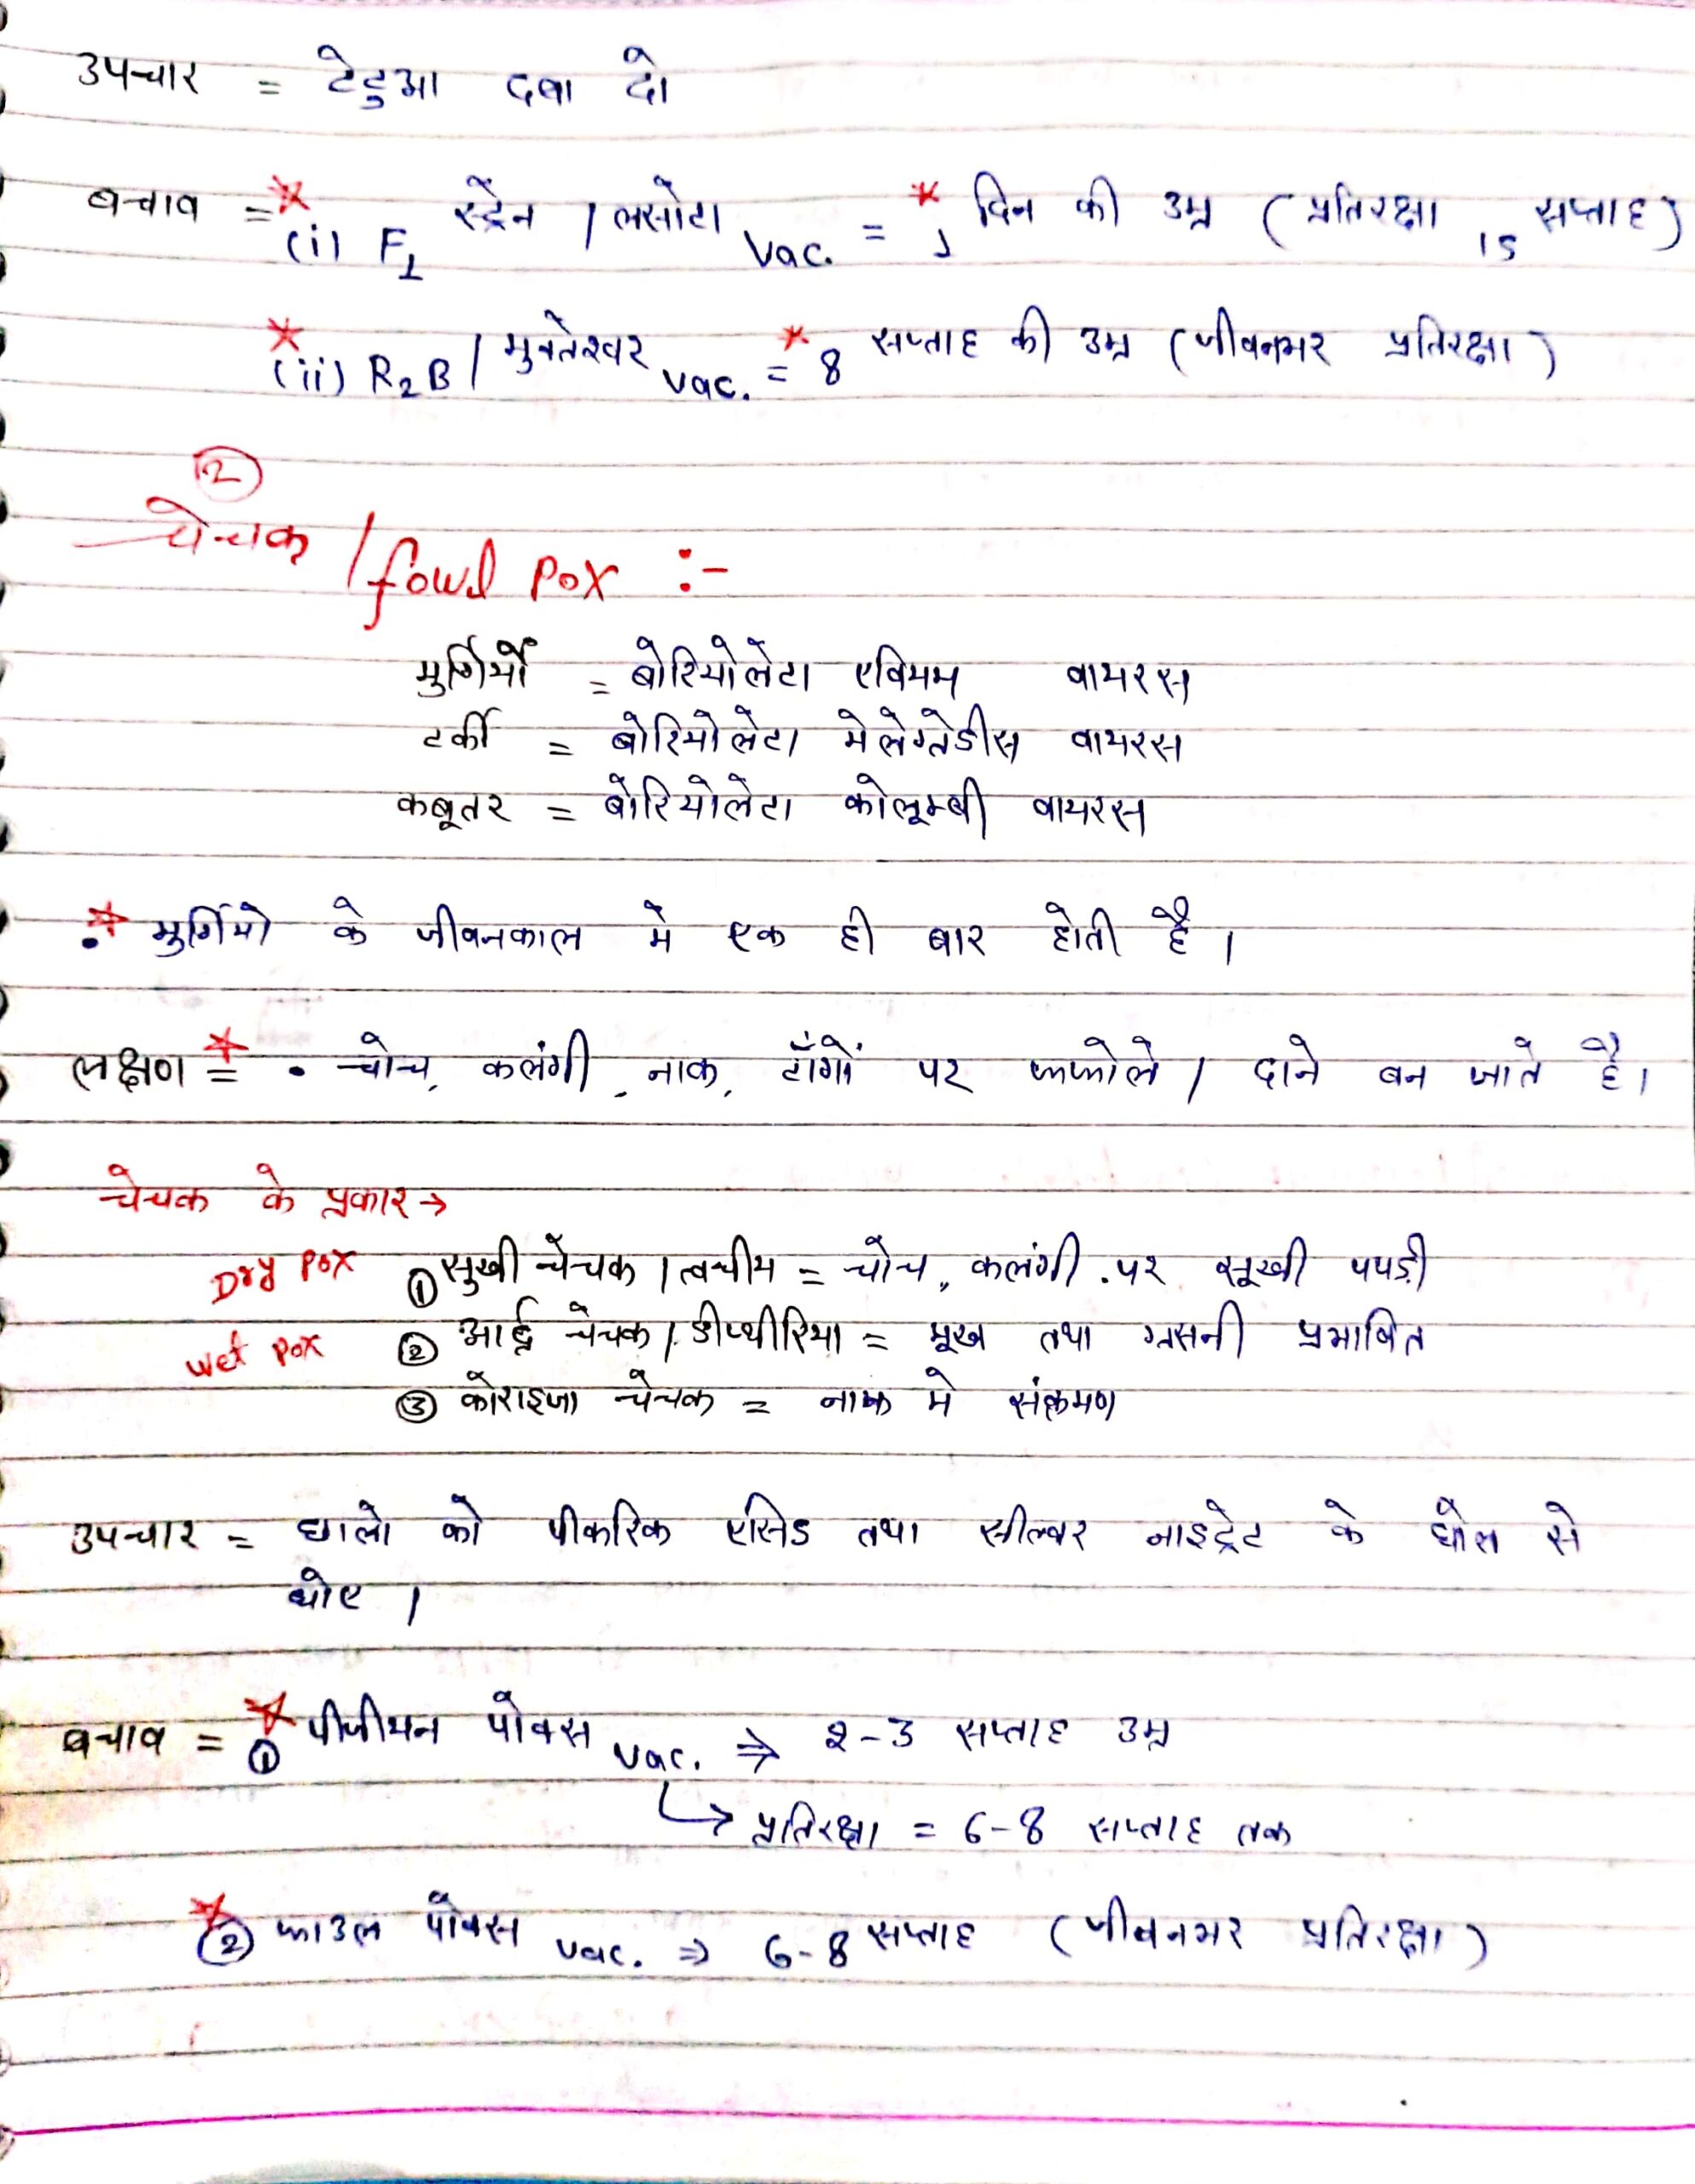 उपचार = टेटुआ दबा दो
बचाव = * (i) F1 स्ट्रेन / लसोटा vac. = * 1 दिन की उम्र ( प्रतिरक्षा 15 सप्ताह )
* (ii) R2B / मुक्तेश्वर vac. = * 8 सप्ताह की उम्र ( जीवनभर प्रतिरक्षा )
②
चेचक / fowl Pox :-
मुर्गियों = बोरियोलेटा एवियम वायरस
टर्की = बोरियोलेटा मेलेग्रेडीस वायरस
कबूतर = बोरियोलेटा कोलूम्बी वायरस
* • मुर्गियो के जीवनकाल मे एक ही बार होती है ।
लक्षण = * • चोच, कलंगी, नाक, टाँगों पर फफोले / दाने बन जाते है।
चेचक के प्रकार →
Dry Pox ① सुखी चेचक / त्वचीय = चोच, कलंगी पर सूखी पपड़ी
wet Pox ② आर्द्र चेचक / डीप्थीरिया = मूख तथा ग्रसनी प्रभावित
③ कोराइजा चेचक = नाक मे संक्रमण
उपचार = छालो को पीकरिक एसिड तथा सील्वर नाइट्रेट के घोल से
धोए ।
बचाव = * ① पीजीयन पोक्स vac. ⇒ 2-3 सप्ताह उम्र
↳ प्रतिरक्षा = 6-8 सप्ताह तक
* ② फाउल पोक्स vac. ⇒ 6-8 सप्ताह ( जीवनभर प्रतिरक्षा )